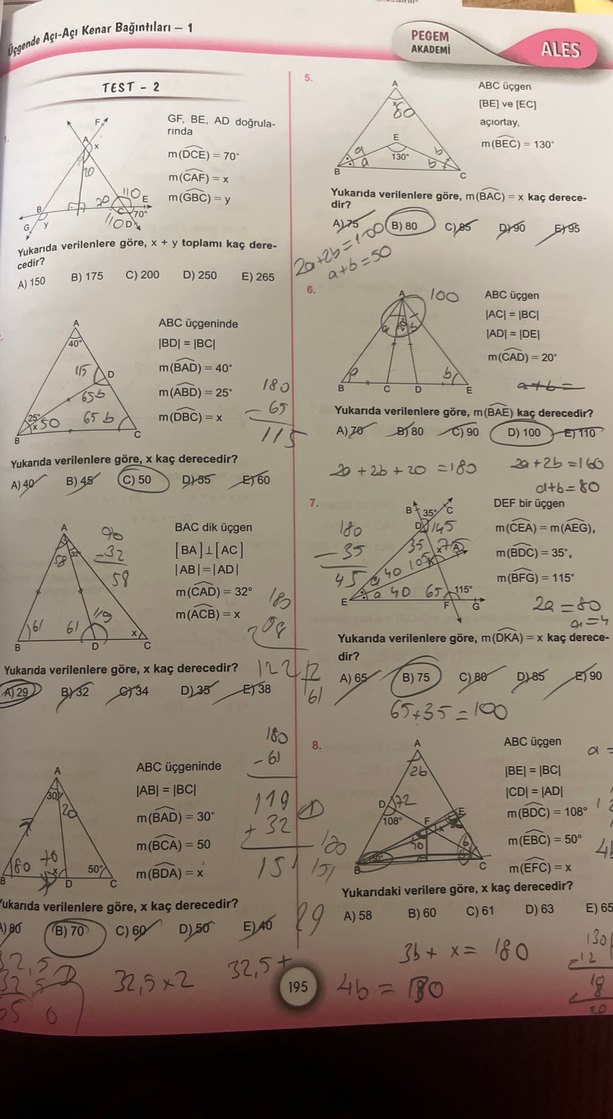 Üçgende Açı-Açı Kenar Bağıntıları – 1
PEGEM
AKADEMİ
ALES
TEST - 2
GF, BE, AD doğrula-
rında
m(DCE) = 70°
m(CAF) = x
m(GBC) = y
F
A
x
20
20
110
B
C
E
70°
G
y
110
D
Yukarıda verilenlere göre, x + y toplamı kaç dere-
cedir?
A) 150 B) 175 C) 200 D) 250 E) 265
ABC üçgeninde
|BD| = |BC|
m(BAD) = 40°
m(ABD) = 25°
m(DBC) = x
A
40°
115
D
65
25°
x
50
65
B
C
180
- 65
115
Yukarıda verilenlere göre, x kaç derecedir?
A) 40 B) 45 C) 50 D) 55 E) 60
BAC dik üçgen
[BA]⊥[AC]
|AB| = |AD|
m(CAD) = 32°
m(ACB) = x
A
58
32°
90
- 32
58
61
61
119
x
B
D
C
180
122
2
61
Yukarıda verilenlere göre, x kaç derecedir?
A) 29 B) 32 C) 34 D) 35 E) 38
180
- 61
119
+ 32
151
180
151
29
ABC üçgeninde
|AB| = |BC|
m(BAD) = 30°
m(BCA) = 50
m(BDA) = x
A
30°
20
80
70
x
50°
B
D
C
Yukarıda verilenlere göre, x kaç derecedir?
A) 80 B) 70 C) 60 D) 50 E) 40
32,5
32,5 x 2
32,5 +
5.
ABC üçgen
[BE] ve [EC]
açıortay,
m(BEC) = 130°
A
x
80
E
130°
a
a
b
b
B
C
Yukarıda verilenlere göre, m(BAC) = x kaç derece-
dir?
A) 75 B) 80 C) 85 D) 90 E) 95
2a+2b=100
a+b=50
6.
ABC üçgen
|AC| = |BC|
|AD| = |DE|
m(CAD) = 20°
A
100
a
b
a
b
B
C
D
E
a+b=
Yukarıda verilenlere göre, m(BAE) kaç derecedir?
A) 70 B) 80 C) 90 D) 100 E) 110
2a + 2b + 20 = 180
2a+2b = 160
a+b = 80
7.
DEF bir üçgen
m(CEA) = m(AEG),
m(BDC) = 35°,
m(BFG) = 115°
B
35°
C
D
145
35
105
x
75
A
K
a
40
a
40
65
115°
E
F
G
180
- 35
45
2a = 80
Yukarıda verilenlere göre, m(DKA) = x kaç derece-
dir?
A) 65 B) 75 C) 80 D) 85 E) 90
65+35 = 100
8.
ABC üçgen
|BE| = |BC|
|CD| = |AD|
m(BDC) = 108°
m(EBC) = 50°
m(EFC) = x
A
2b
D
72
108°
F
x
E
B
C
Yukarıdaki verilere göre, x kaç derecedir?
A) 58 B) 60 C) 61 D) 63 E) 65
3b + x = 180
4b = 180
195